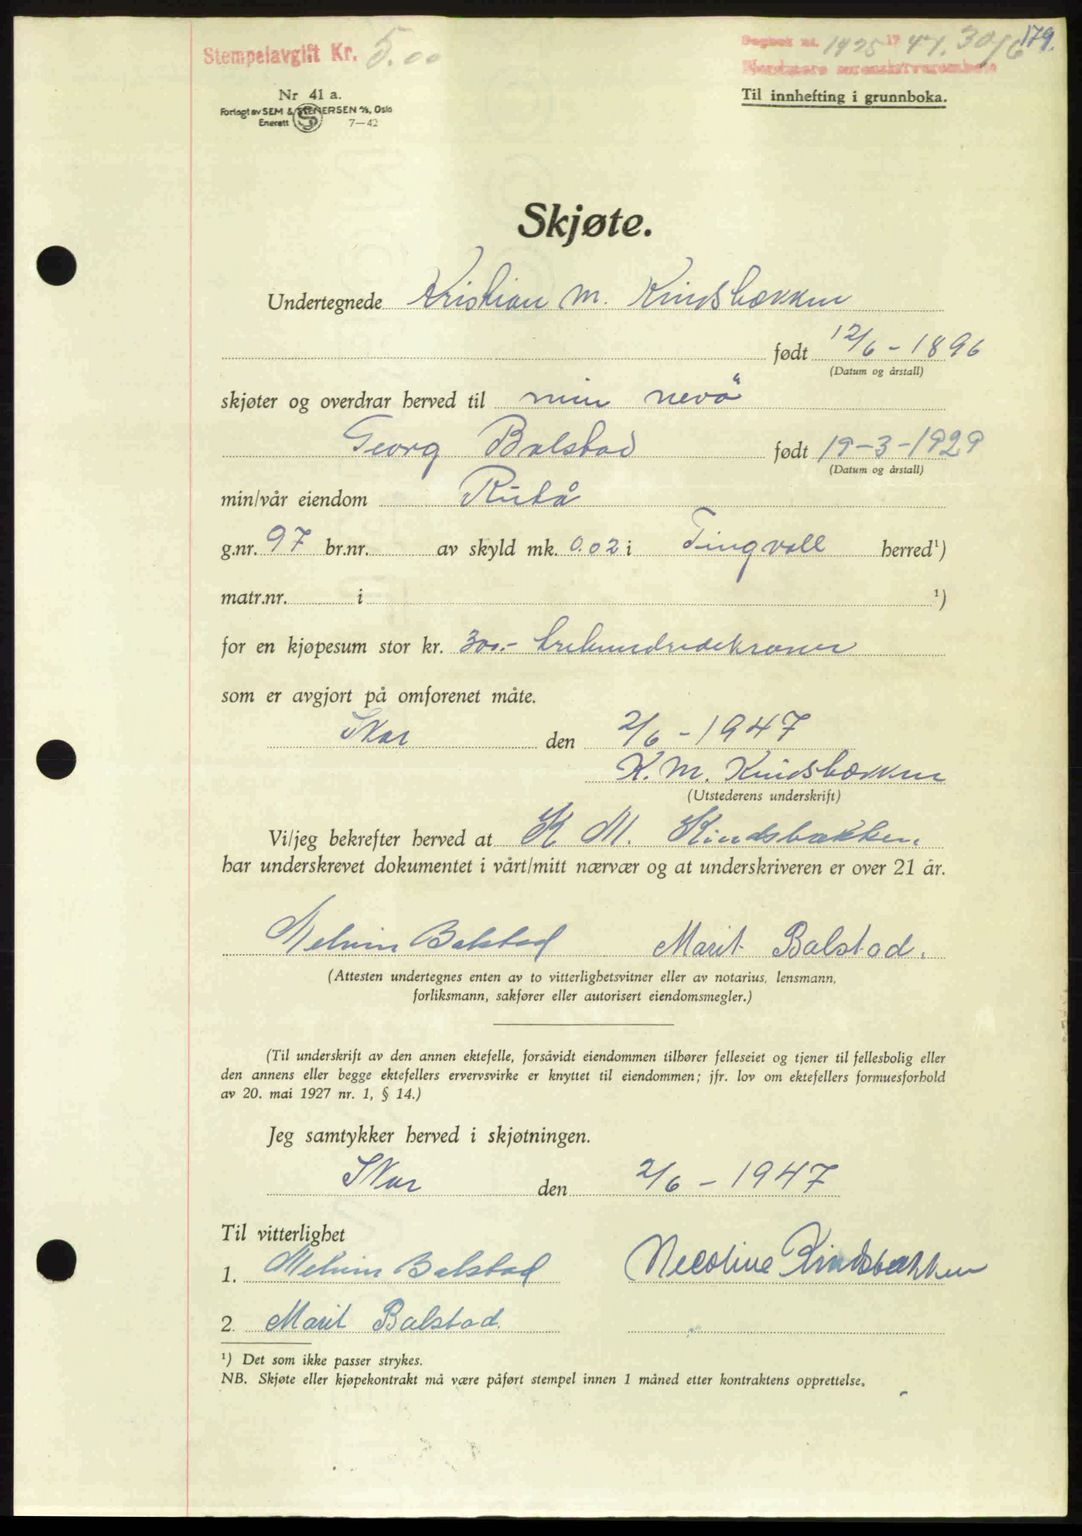 Stempelavgift Kr. 5.00
Dagbok nr. 1425 1947. 30/6 179.
Nordmøre sorenskriverembete
Nr 41 a.
Forlagt av SEM & STENERSEN A/S, Oslo
Enerett 7—42
Til innhefting i grunnboka.
Skjøte.
Undertegnede Kristian M. Kindsbækken
født 12/6 - 1896
(Datum og årstall)
skjøter og overdrar herved til min nevö
Georg Balstad født 19-3-1929
(Datum og årstall)
min/vår eiendom
g.nr. 97 br.nr. av skyld mk. 0.02 i Tingvoll herred¹)
matr.nr. i ¹)
for en kjøpesum stor kr. 300.- trehundredekroner
som er avgjort på omforenet måte.
Skar den 2/6 - 1947
K. M. Kindsbækken
(Utstederens underskrift)
Vi/jeg bekrefter herved at K M. Kindsbækken.
har underskrevet dokumentet i vårt/mitt nærvær og at underskriveren er over 21 år.
Melvin Balstad Marit Balstad.
(Attesten undertegnes enten av to vitterlighetsvitner eller av notarius, lensmann,
forliksmann, sakfører eller autorisert eiendomsmegler.)
(Til underskrift av den annen ektefelle, forsåvidt eiendommen tilhører felleseiet og tjener til fellesbolig eller
den annens eller begge ektefellers ervervsvirke er knyttet til eiendommen; jfr. lov om ektefellers formuesforhold
av 20. mai 1927 nr. 1, § 14.)
Jeg samtykker herved i skjøtningen.
Skar den 2/6 - 1947
Til vitterlighet
1. Melvin Balstad Necoline Kindsbækken
2. Marit Balstad.
¹) Det som ikke passer strykes.
NB. Skjøte eller kjøpekontrakt må være påført stempel innen 1 måned etter kontraktens opprettelse.